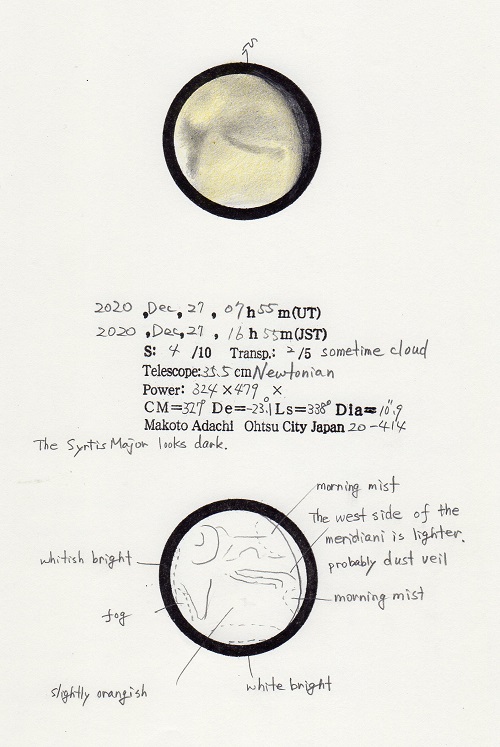 S
2020 ,Dec, 27 , 07h 55m(UT)
2020 ,Dec, 27 , 16h 55m(JST)
S: 4 /10 Transp.: 2/5 sometime cloud
Telescope: 35.5 cm Newtonian
Power: 324×479 ×
CM=327° De=-23.1° Ls=338° Dia=10".9
Makoto Adachi Ohtsu City Japan 20-414
The Syrtis Major looks dark.
morning mist
The west side of the
meridiani is lighter.
probably dust veil
whitish bright
morning mist
fog
slightly orangish
white bright